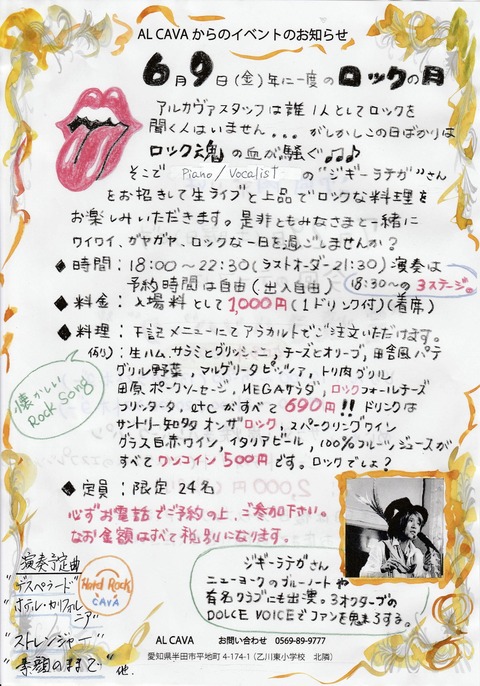 AL CAVA からのイベントのお知らせ
6月9日(金)年に一度のロックの日
アルカヴァスタッフは誰1人としてロックを
聞く人はいません...がしかしこの日ばかりは
ロック魂の血が騒ぐ♫♪
そこで Piano/Vocalist の"ジギーラテガ"さん
をお招きして生ライブと上品でロックな料理を
お楽しみいただきます。是非ともみなさまと一緒に
ワイワイ、ガヤガヤ、ロックな一日を過ごしませんか?
◆時間:18:00〜22:30(ラストオーダー21:30)演奏は
予約時間は自由(出入自由) 18:30〜の3ステージ。
◆料金:入場料として1,000円(1ドリンク付)(着席)
◆料理:下記メニューにてアラカルトでご注文いただけます。
例)生ハム、サラミとグリッシーニ,チーズとオリーブ,田舎風パテ
グリル野菜,マルゲリータピッツァ,トリ肉グリル
田原ポークソーセージ,MEGAサラダ,ロックフォールチーズ
フリッタータ,etcがすべて690円!!ドリンクは
サントリー知多オンザロック,スパークリングワイン
グラス白赤ワイン,イタリアビール,100%フルーツジュースが
すべてワンコイン500円です。ロックでしょ?
懐かしい
Rock Song
◆定員:限定24名
必ずお電話でご予約の上、ご参加下さい。
なお金額はすべて税別になります。
演奏予定曲
"デスペラード"
"ホテル・カリフォルニア"
"ストレンジャー"
"素顔のままで"他.
Hard Rock
CAVA
ジギーラテガさん
ニューヨークのブルーノートや
有名クラブにも出演。3オクターブの
DOLCE VOICEでファンを魅了する。
AL CAVA お問い合わせ 0569-89-9777
愛知県半田市平地町 4-174-1 (乙川東小学校 北隣)